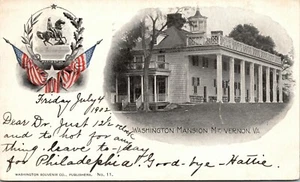 Friday July 4
1902
WASHINGTON MANSION MT. VERNON, VA.
Dear Dr. Just 12½ o'clock
and to hot for any
thing. leave to-day
for Philadelphia Good-bye - Hattie.
WASHINGTON SOUVENIR CO., PUBLISHERS. No. 11.